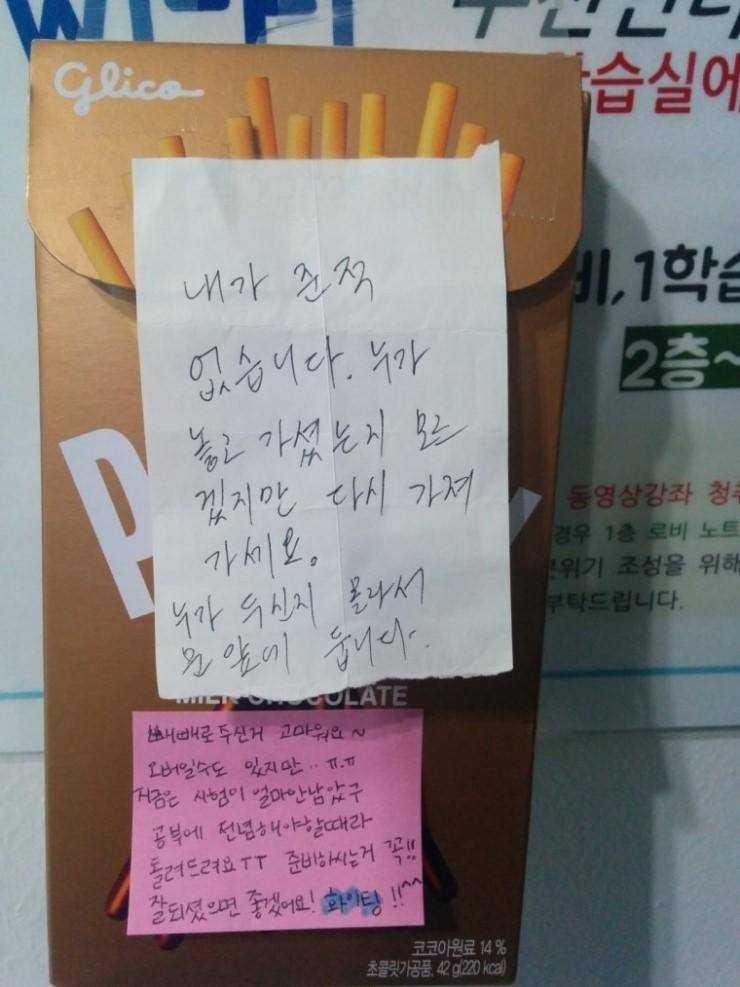 Glico
습실에
내가 준적
없습니다. 누가
놓고 가셨는지 모르
겠지만 다시 가져
가세요.
누가 두신지 몰라서
문 앞에 둡니다.
비,1학습
2층~
동영상강좌
경우 1층 로비 노트
조성을 위해
부탁드립니다.
P
MILK CHOCOLATE
빼빼로 두신거 고마워요~
오버일수도 있지만.. ㅠ.ㅠ
지금은 시험이 얼마안남았구
공부에 전념해야할때라
돌려드려요ㅜㅜ 준비하시는거 꼭!!
잘되셨으면 좋겠어요! 화이팅!!^^
코코아원료 14 %
초콜릿가공품, 42 g(220 kcal)